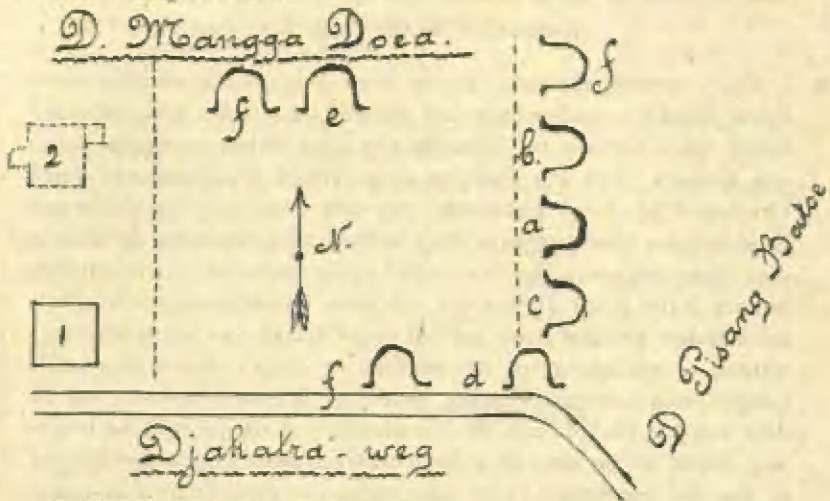 D. Mangga Doea.
f e f
2 b.
N. a
1 c
f d
D Pisang Batoe
Djahatra - weg